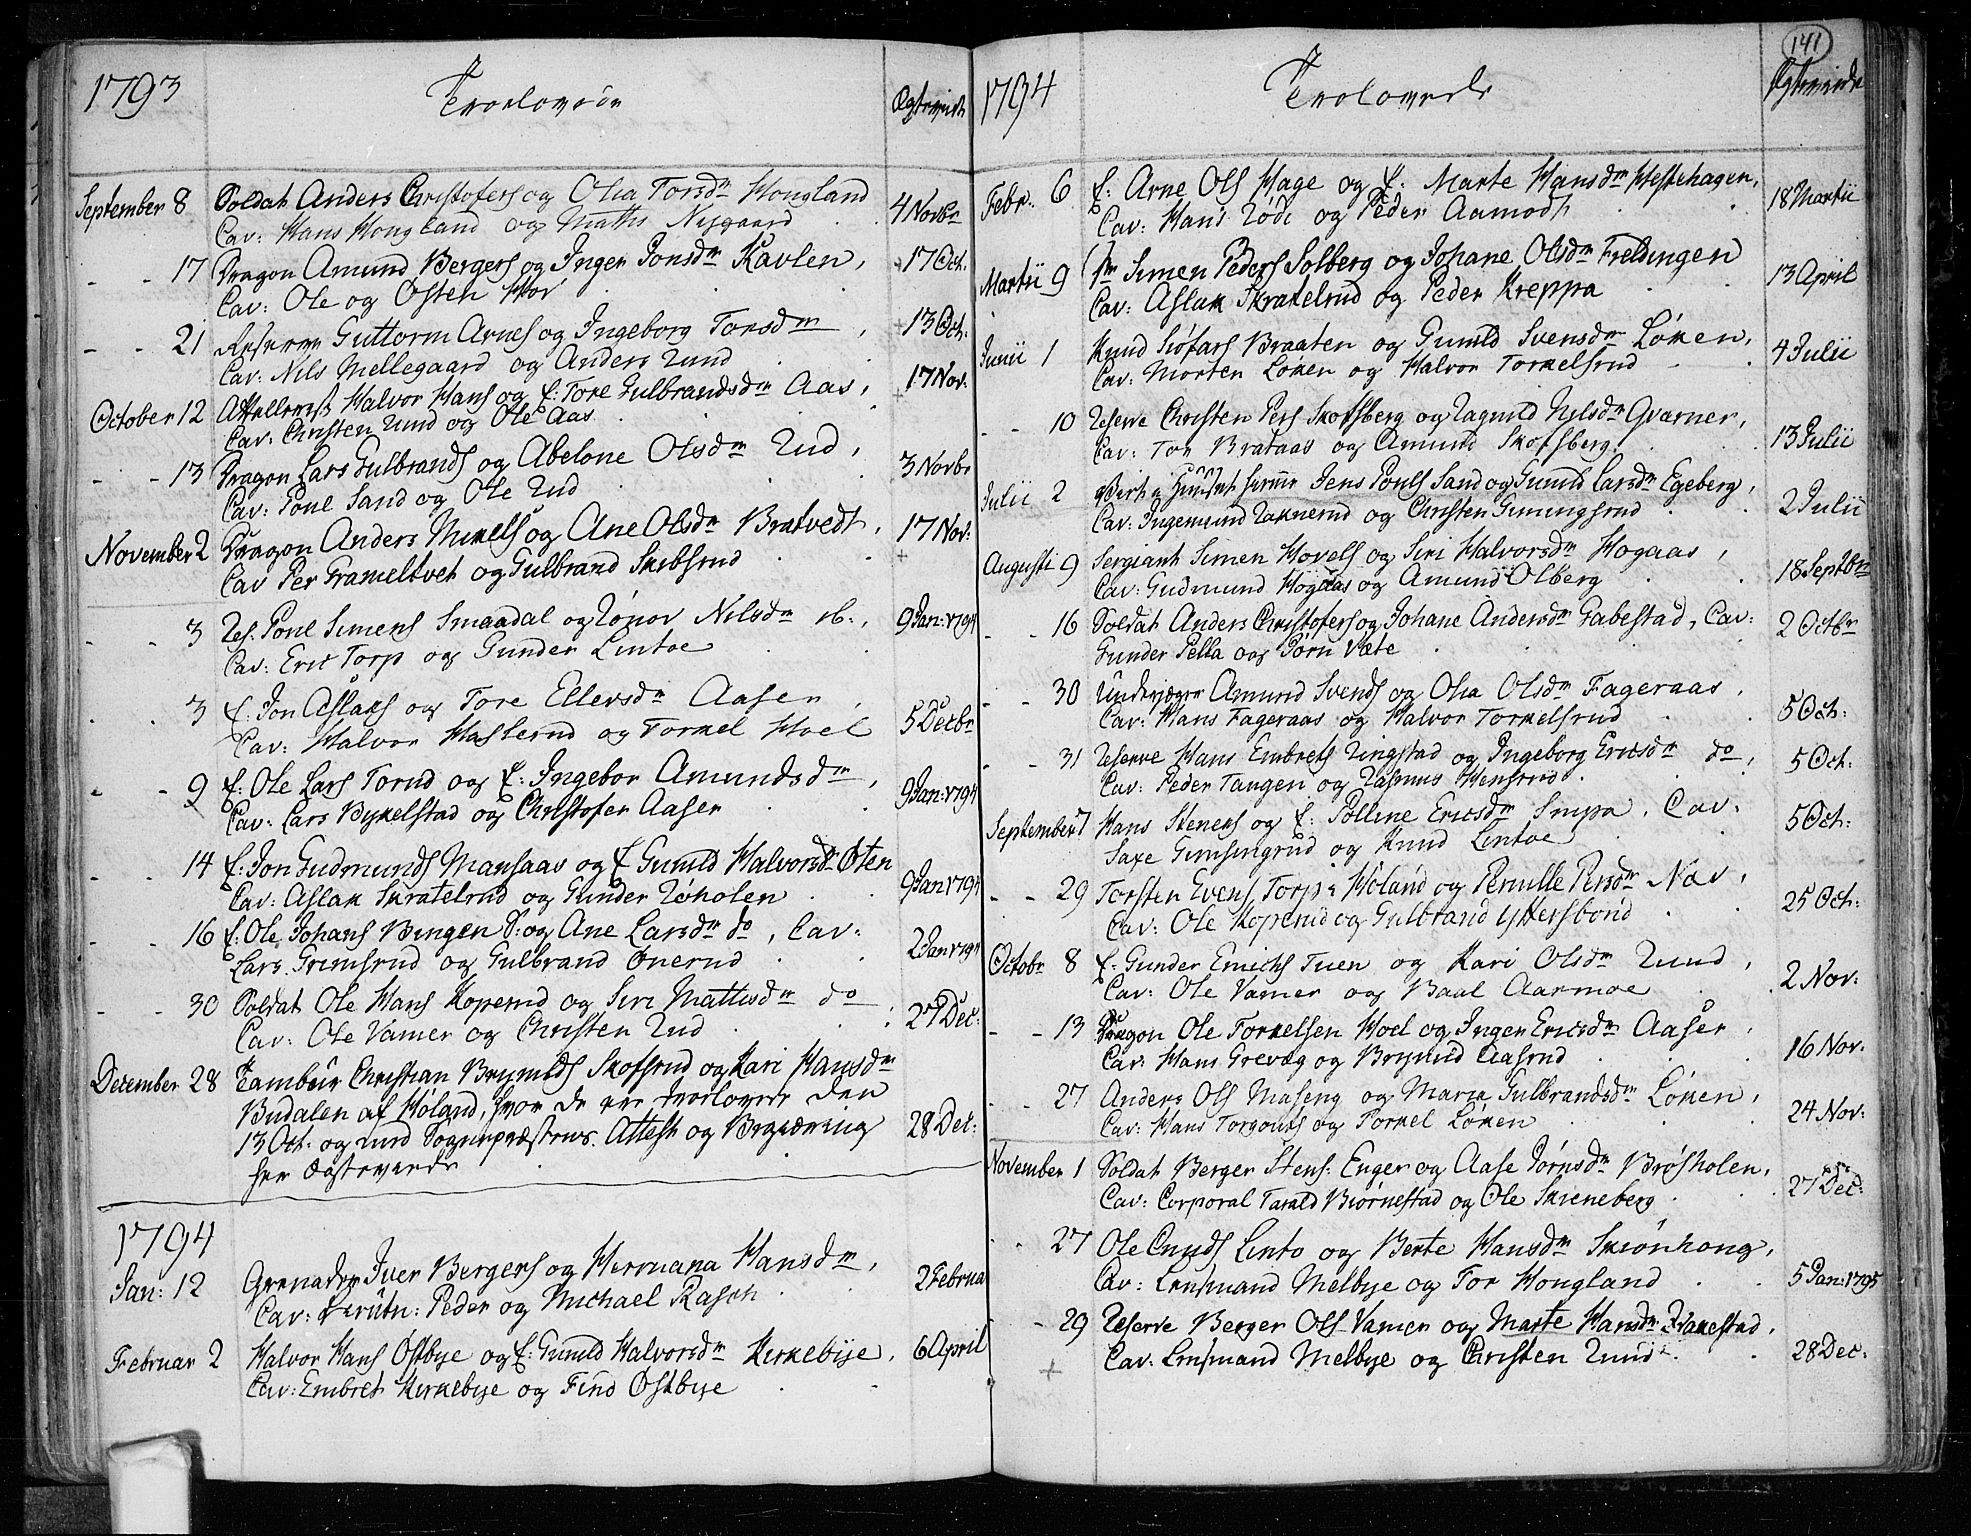 1793
Trolovede
Ægteviede
September 8
Soldat Anders Christofers og Olia Torsdr Hougland
Cav: Hans Hougland og Mathis Nygaard
4 Novbr
- - 17
Dragon Amund Bergers og Inger Jonsdr Kavlen,
Cav: Ole og Østen Mor
17 Oct:
- - 21
Reserve Guttorm Arnes og Ingeborg Torsdr
Cav: Nils Mellegaard og Anders Lund
13 Oct:
October 12
Halvor Hans og f: Tore Gulbrandsdr Aas,
Cav: Christen Lund og Ole Aas
17 Nov:
- - 13
Dragon Lars Gulbrands og Abelone Olsdr Rud,
Cav: Poul Sand og Ole Rud
3 Novbr
November 2
Dragon Anders Mikels og Ane Olsdr Bratvedt,
Cav Per Grameltvet og Gulbrand Skibsrud
17 Nov:
- - 3
Res: Poul Simens Smaadal og Rønov Nilsdr ib.,
Cav: Eric Torp og Gunder Lintoe
9 Jan: 1794
- - 3
f: Jon Aslaks og Tore Ellevsdr Aaser,
Cav: Halvor Haslerud og Torkel Hoel
5 Decbr
- - 9
f: Ole Lars Torud og f: Ingebor Amundsdr,
Cav: Lars Bykelstad og Christofer Aaser
9 Jan: 1794
- - 14
f: Jon Gudmunds Mansaas og f Gunild Halvorsdr Øten
Cav: Aslak Skratelrud og Gunder Røholen
9 Jan 1794
- - 16
f: Ole Johans Bingen S: og Ane Larsdr do, Cav:
Lars Grimsrud og Gulbrand Onerud
2 Jan 1794
- - 30
Soldat Ole Hans Koperud og Siri Mattisdr do
Cav: Ole Vamer og Christen Rud
27 Dec:
December 28
Tambur Christian Brynilds Skofsrud og Kari Hansdr
Budalen af Høland, hvor de ere trolovede den
13 Oct: og med Sognepræstens Attest og Begiæring
her ægteviede
28 Dec:
1794
Jan: 12
Grenader Iver Bergers og Hermana Hansdr,
Cav: Peder og Michael Rasch
2 Februa
Februar 2
Halvor Hans Østbye og f: Gunild Halvorsdr Kirkebye,
Cav: Embret Kirkebye og Find Østbye
6 April
141
1794
Trolovede
Ægteviede
Febr. 6
f: Arne Ols Hage og f: Marte Hansdr Hestehagen,
Cav: Hans Røde og Peder Aamodt
18 Martii
Martii 9
Simen Peders Solberg og Johane Olsdr Freldingen
Cav: Aslak Skratelrud og Peder Kreppa
13 April
Junii 1
Knud Siøfars Braaten og Gunild Svensdr Løken,
Cav: Morten Løken og Halvor Torkelsrud
4 Julii
- - 10
Reserve Christen Pers Skofsberg og Ragnild Nilsdr Qvarner,
Cav: Tor Brataas og Amund Skofsberg
13 Julii
Julii 2
Jens Pouls Sand og Gunild Larsdr Egeberg,
Cav: Ingemund Raknerud og Christen Gimingsrud
2 Julii
Augusti 9
Sergiant Simen Hovels og Siri Halvorsdr Høgaas,
Cav: Gudmund Høgaas og Amund Olberg
18 Septbr
- - 16
Soldat Anders Christofers og Johane Andersdr Gabestad, Cav:
Gunder Pella og Biørn Væte
2 Octbr
- - 30
Underjæger Amund Svends og Olia Olsdr Fageraas,
Cav: Hans Fageraas og Halvor Torkelsrud
5 Oct:
- - 31
Reserve Hans Embrets Ringstad og Ingeborg Ericsdr do,
Cav: Peder Tangen og Rasmus Hensrud
5 Oct:
September 7
Hans Steners og f: Polline Ericsdr Snipa, Cav:
Saxe Gimsingrud og Knud Lintoe
5 Oct:
- - 29
Torsten Evens Torp i Høland og Pernille Persdr Næv,
Cav: Ole Koperud og Gulbrand Yttersbond
25 Oct:
Octobr 8
f: Gunder Emichs Tuen og Kari Olsdr Lund,
Cav: Ole Vamer og Baal Aarmoe
2 Nov:
- - 13
Dragon Ole Torkelsen Hoel og Inger Ericsdr Aaser,
Cav: Hans Grevæg og Brynild Aasrud
16 Nov:
- - 27
Anders Ols Maseng og Maria Gulbrandsdr Løken,
Cav: Hans Torgouts og Torkel Løken
24 Nov:
November 1
Soldat Berger Stens: Enger og Aase Jørnsdr Brøsholen,
Cav: Corporal Tarald Biørnestad og Ole Skieneberg
27 Dec:
- 27
Ole Cnuds Linto og Berte Hansdr Skiønhoug,
Cav: Lensmand Melbye og Tor Hougland
5 Jan: 1795
- 29
Reserve Berger Ols Vamer og Marte Hansdr Krakestad,
Cav: Lensmand Melbye og Christen Lund
28 Dec: